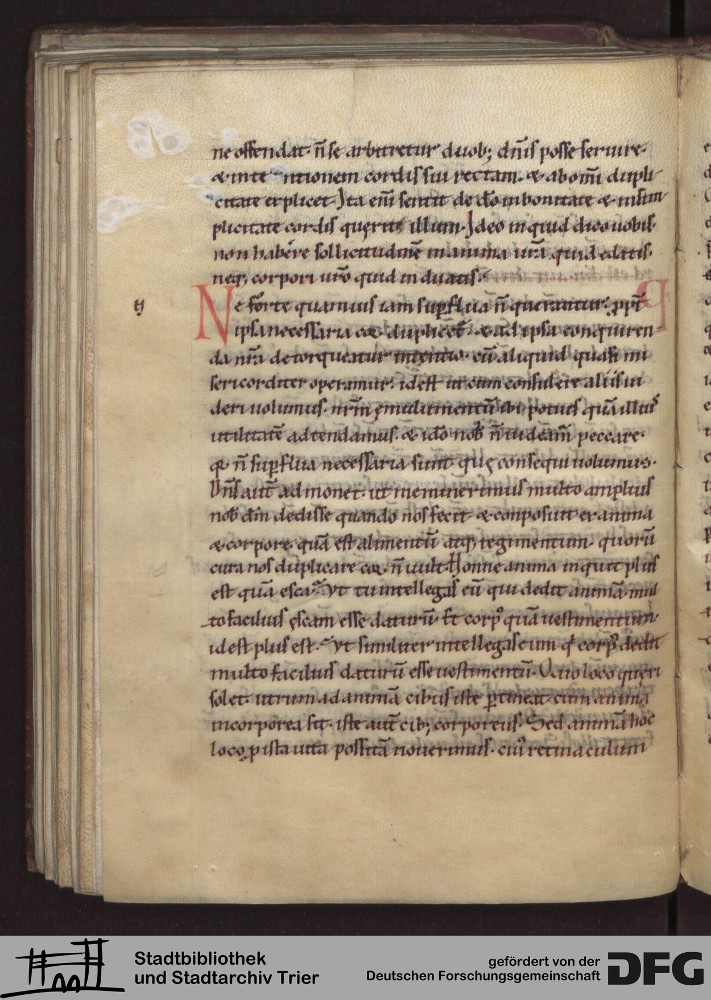 ne offendat· n̄ se arbitretur duob; dn̄is posse seruire·
& inte ntionem cordis sui rectam· & ab om̄i dupli
citate explicet· Ita eni̅ sentit de dn̄o in bonitate & in sim
plicitate cordis querit illum· Ideo inquid dico uobis
non habere sollicitudinē in anima ur̄a quid edatis·
neq; corpori uro̅ quid induatis·
Ne forte quamuis iam sup̄flua n̄ querantur· ꝓpt̄
ipsa necessaria cor duplicet· & ad ipsa conquiren
da nr̄a detorqueatur intentio· cū aliquid quasi mi
sericorditer operamur· id est ut cum consulere alicui ui
deri uolumus· nr̄m emolumentū ibi potius quā illius
utilitatē adtendamus· & ido̅ nob̄ n̄ uideam̄ peccare·
quia n̄ sup̄flua necessaria sunt que consequi uolumus·
Dn̄s aut̄ admonet· ut meminerimus multo amplius
nob̄ dm̄ dedisse quando nos fecit· & conposuit ex anima
& corpore· quā est alimentū atq; tegimentum· quorū
cura nos duplicare cor n̄ uult· Nonne anima inquit plus
est quā esca· Ut tu intellegas eū qui dedit animā· mul
to facilius escam esse daturū· Et corp' quā uestimentum·
id est plus est· Ut similiter intellegas eum qi corp' dedit
multo facilius daturū esse uestimentū· Quo loco queri
solet· utrum ad animā cibus iste ꝑtineat· cum anima
incorporea sit· iste aut̄ cib; corporeus· Sed animā hoc
loco ꝓ ista uita positā nouerimus· cui' retinaculum
Stadtbibliothek
und Stadtarchiv Trier
gefördert von der
Deutschen Forschungsgemeinschaft
DFG